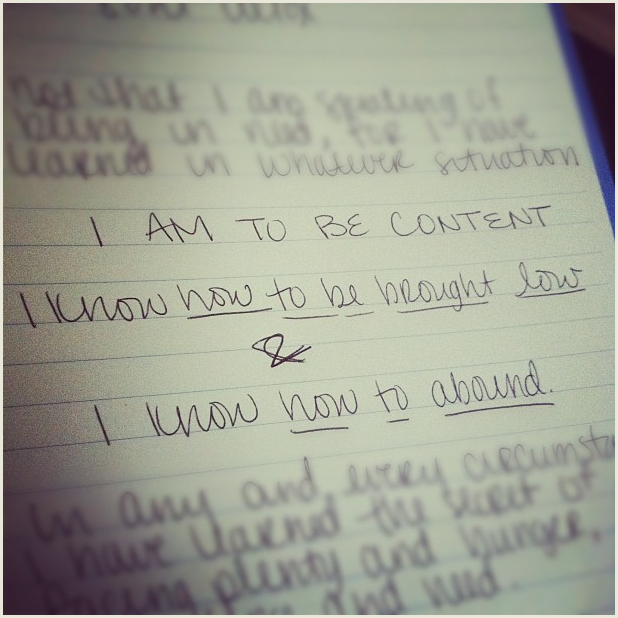 not that I am speaking of
being in need, for I have
learned in whatever situation
I AM TO BE CONTENT
I know how to be brought low
&
I know how to abound.
In any and every circumsta
I have learned the secret of
facing plenty and hunger,
and need.